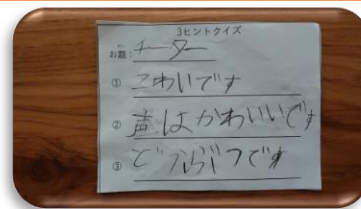 3ヒントクイズ
お題:チーター
① こわいです
② 声はかわいいです
③ どうぶつです